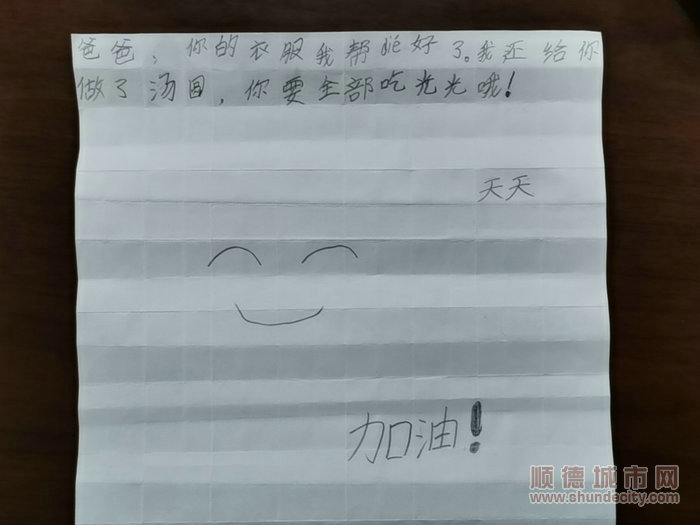 爸爸，你的衣服我帮dié好了。我还给你
做了汤圆，你要全部吃光光哦！
天天
加油！
顺德城市网
www.shundecity.com